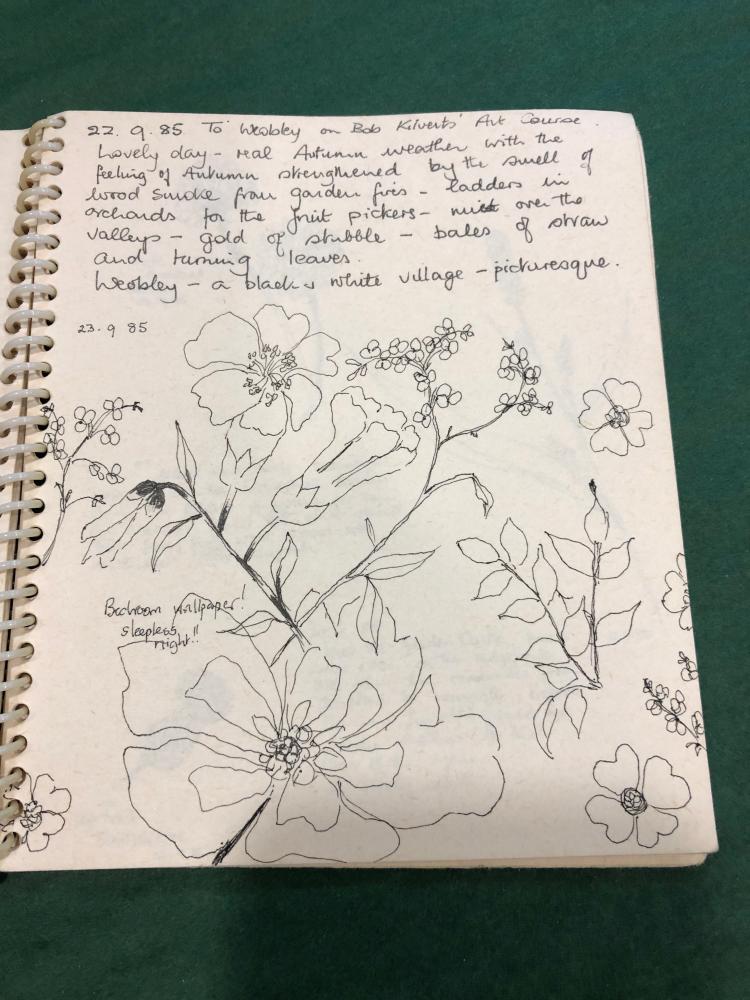 22. 9. 85 To Weobley on Bob Kilverts' Art Course.
Lovely day - real Autumn weather with the
feeling of Autumn strengthened by the smell of
wood smoke from garden fires - ladders in
orchards for the fruit pickers - mist over the
valleys - gold of stubble - bales of straw
and turning leaves.
Weobley - a black & white village - picturesque.
23. 9 85
Bedroom wallpaper!
sleepless
night!!